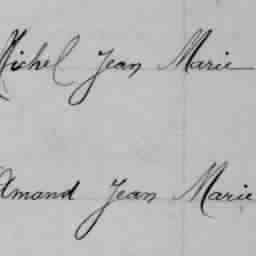 Michel Jean Marie
Amand Jean Marie